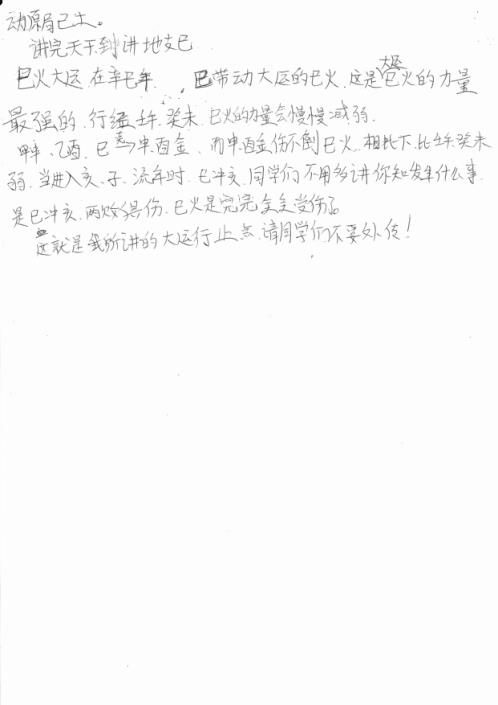 动原局己土。
讲完天干到讲地支巳
巳火大运 在辛巳年 , 巳带动大运的巳火.这是大运巳火的力量
最强的.行经壬午.癸未.巳火的力量会慢慢减弱.
甲申、乙酉.巳克→申酉金、而申酉金伤不倒巳火.相比下.比壬午癸未
弱.当进入亥、子.流年时.巳冲亥.同学们不用多讲你知发生什么事
是巳冲亥.两败俱伤.巳火是完完全全受伤了
这就是我所讲的大运行止点.请同学们不要外传!